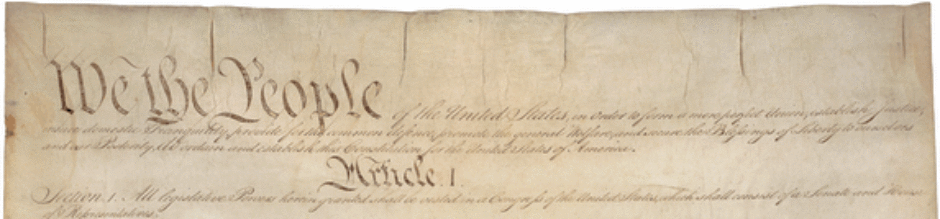 We the People of the United States, in Order to form a more perfect Union, establish Justice,
insure domestic Tranquility, provide for the common defence, promote the general Welfare, and secure the Blessings of Liberty to ourselves
and our Posterity, do ordain and establish this Constitution for the United States of America.
Article I.
Section. 1. All legislative Powers herein granted shall be vested in a Congress of the United States, which shall consist of a Senate and House
of Representatives.